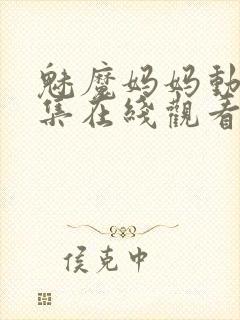 魅魔妈妈動
集在綫觀看
侯克中